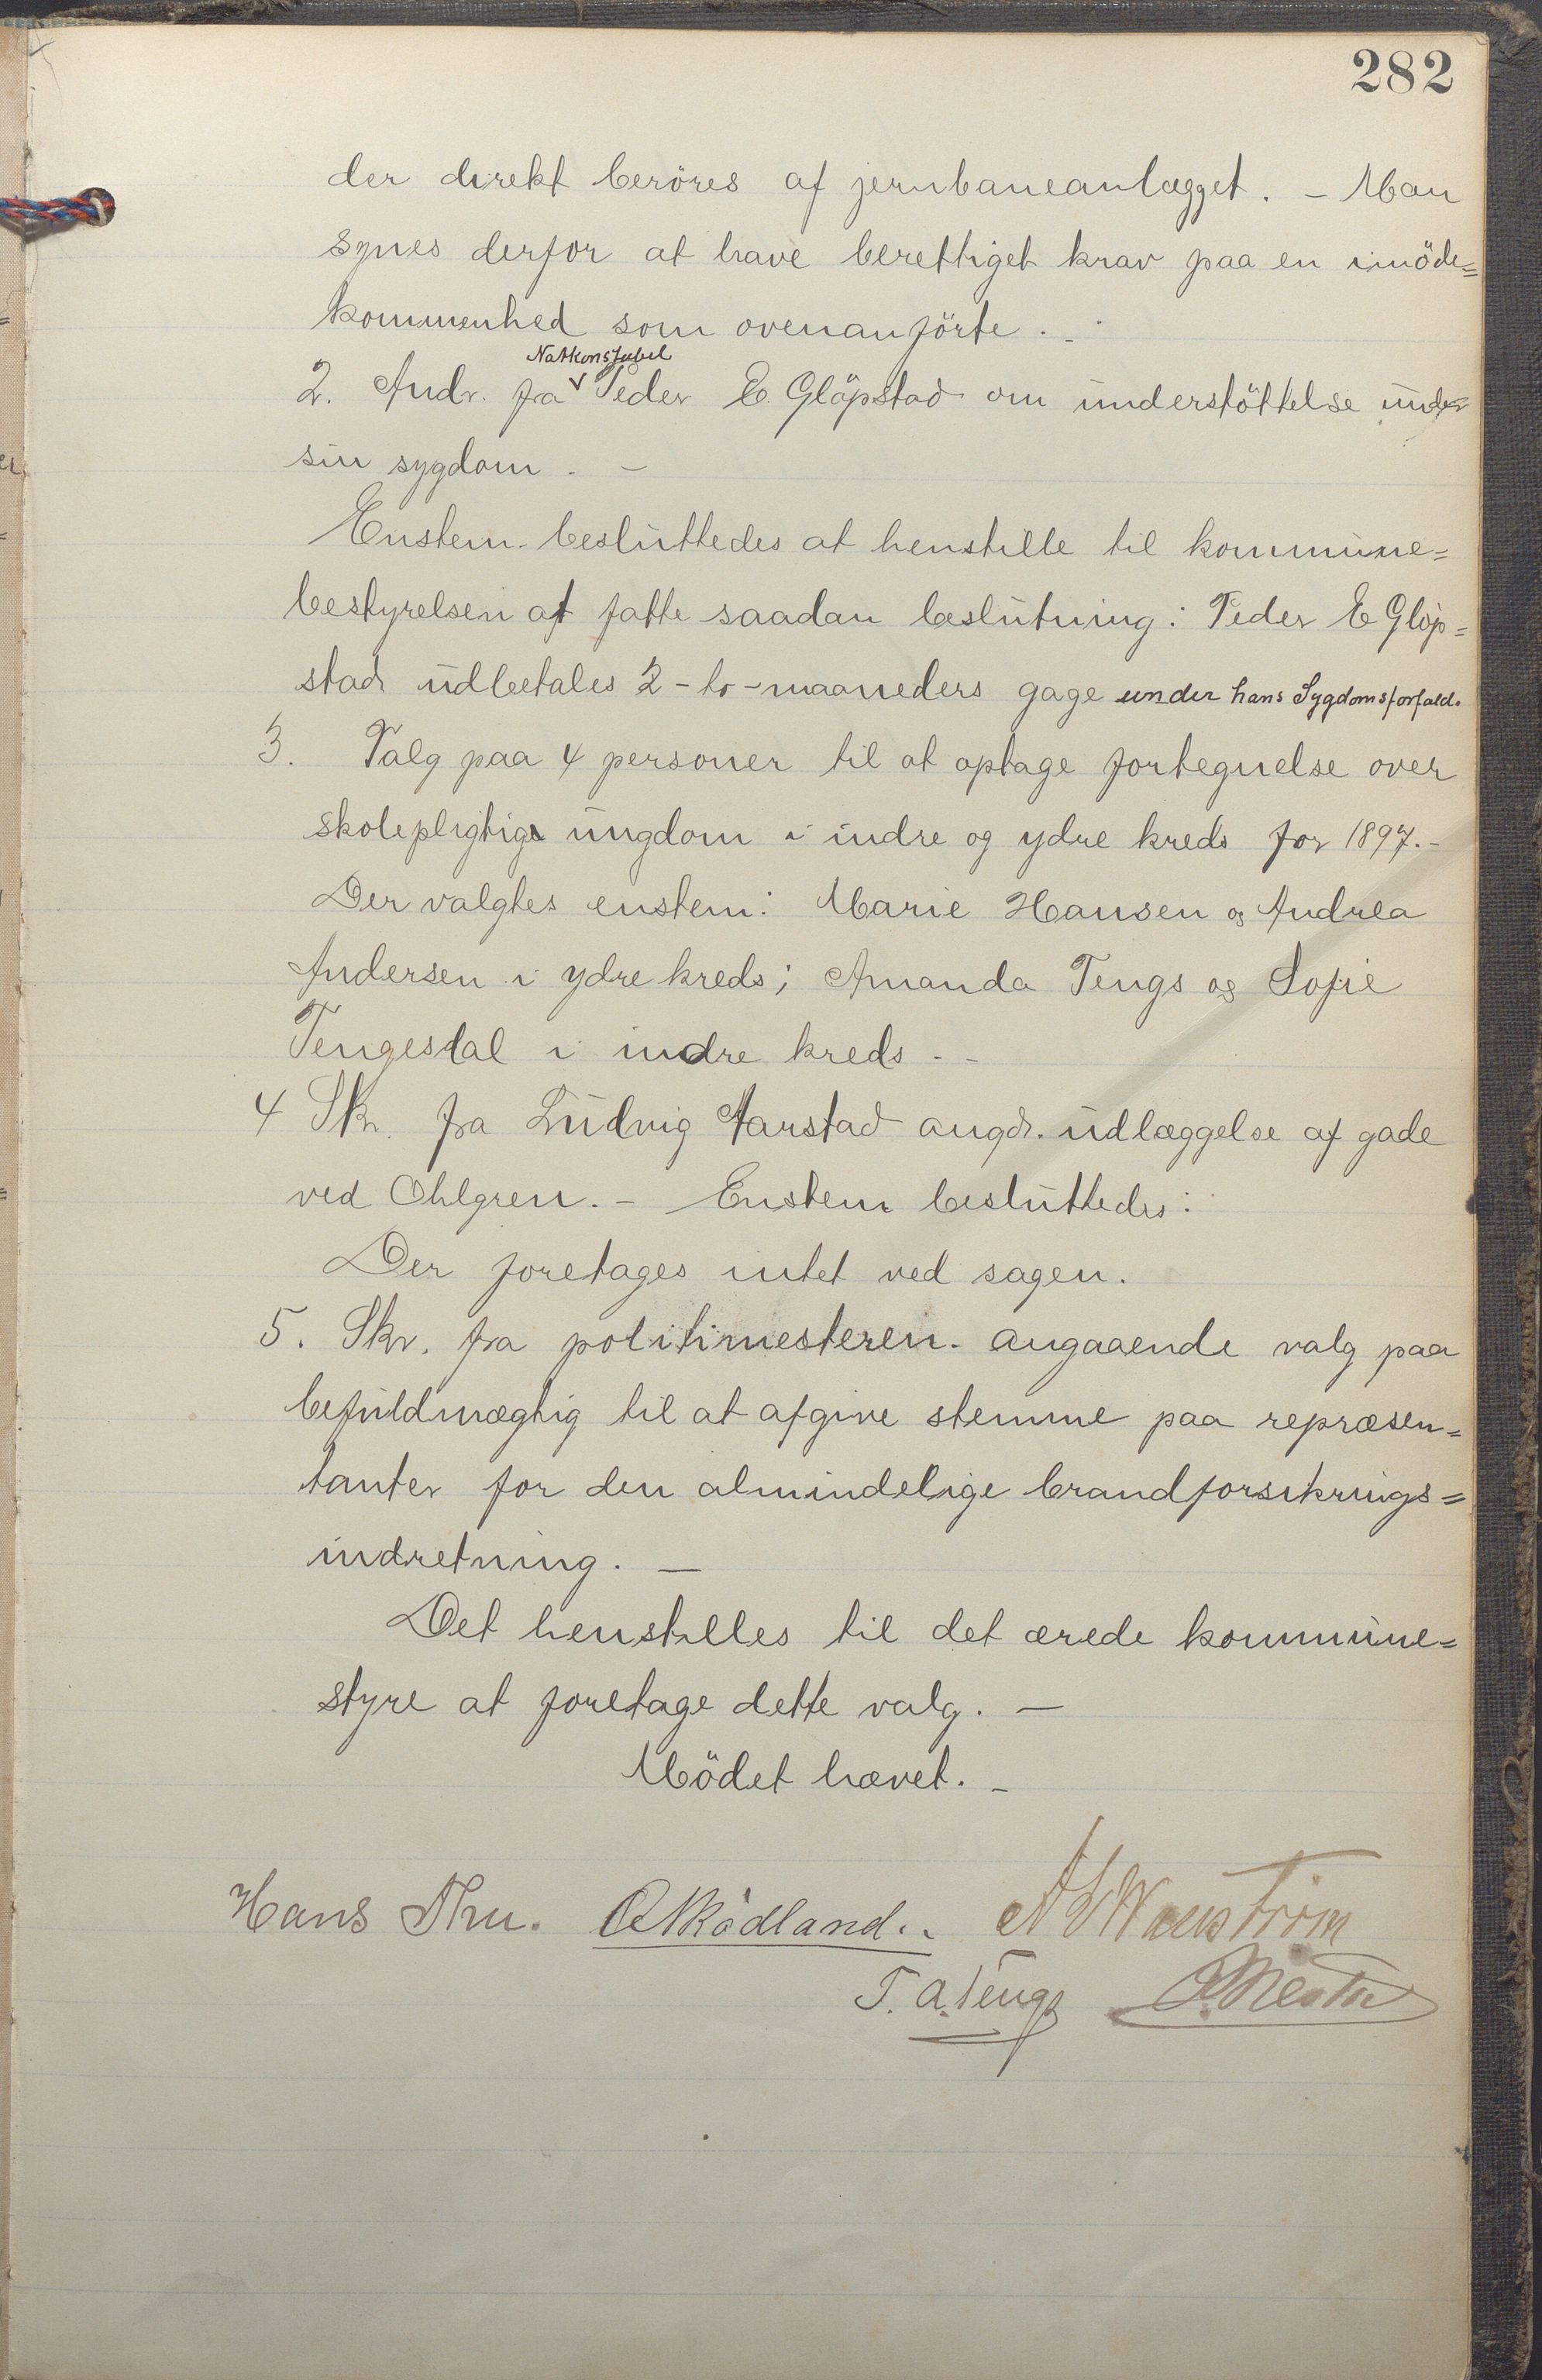 282
der direkt beröres af jernbaneanlægget. – Man
synes derfor at have berettiget krav paa en imöde=
kommenhed som ovenanförte. –
Natkonstabel
2. Andr. fra Peder E Glöpstad om understöttelse under
sin sygdom. –
Enstem. besluttedes at henstille til kommune=
bestyrelsen at fatte saadan beslutning: Peder E Glöp=
stad udbetales 2 - to - maaneders gage under hans Sygdomsforfald.
3. Valg paa 4 personer til at optage fortegnelse over
skolepligtige ungdom i indre og ydre kreds for 1897. –
Der valgtes enstem: Marie Hansen og Andrea
Andersen i ydre kreds; Amanda Tengs og Sofie
Tengesdal i indre kreds. –
4 Skr. fra Ludvig Aarstad angd. udlæggelse af gade
ved Ohlgren. – Enstem besluttedes:
Der foretages intet ved sagen.
5. Skr. fra politimesteren. angaaende valg paa
befuldmægtig til at afgive stemme paa repræsen=
tanter for den almindelige brandforsikrings=
indretning. –
Det henstilles til det ærede kommune=
styre at foretage dette valg. –
Mödet hævet. –
Hans Thu. Rödland..
T. A. Tengs